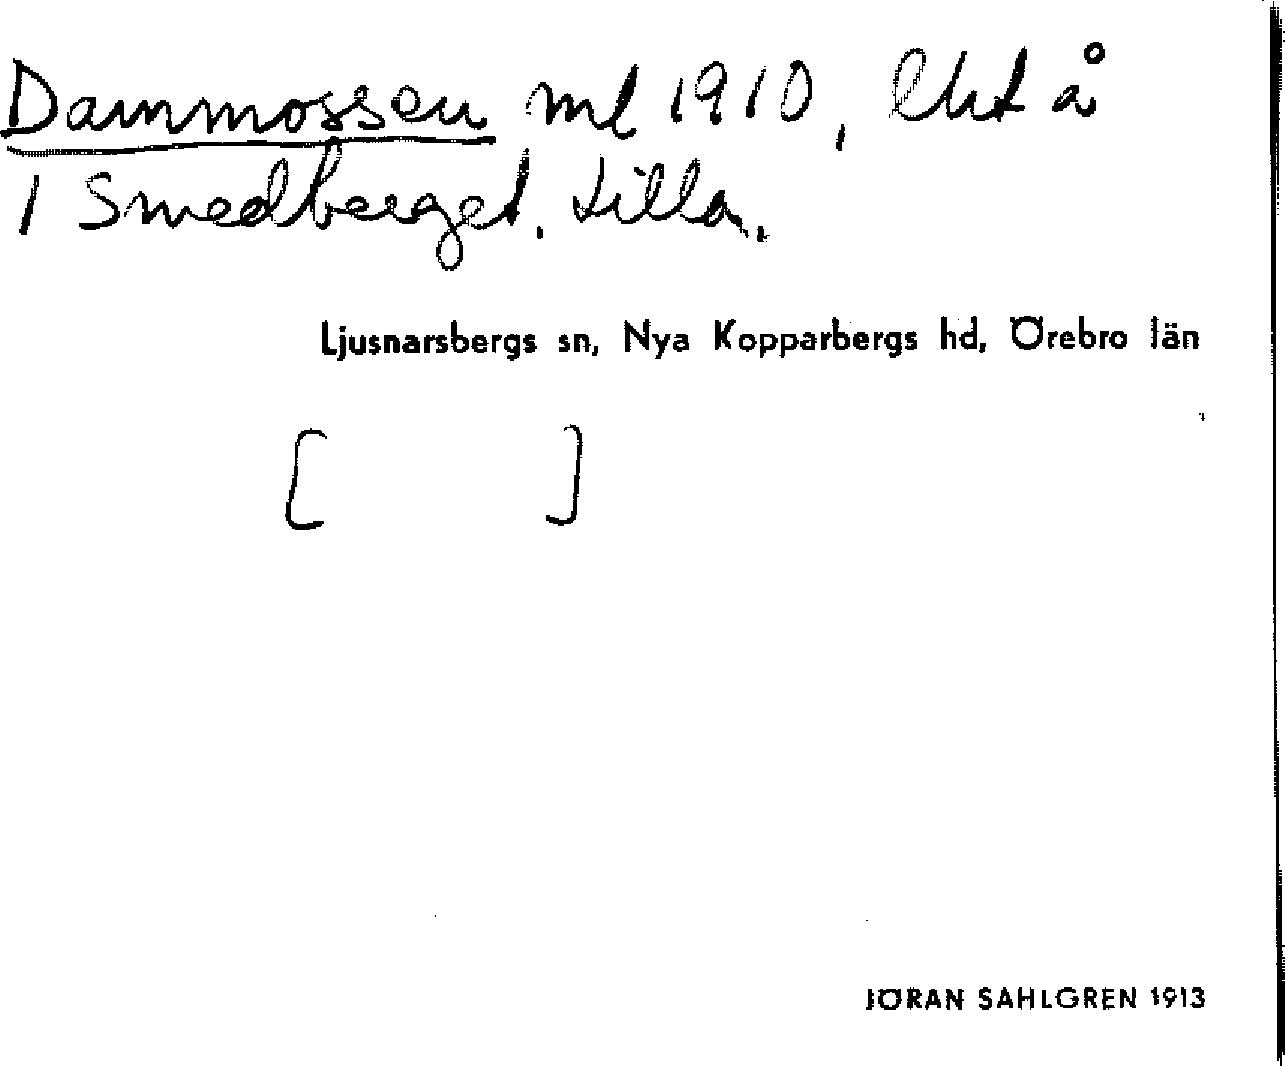 Dammossen ml 1910, lht å
1 Smedberget. Lilla.
Ljusnarsbergs sn, Nya Kopparbergs hd, Örebro län
[ ]
JÖRAN SAHLGREN 1913